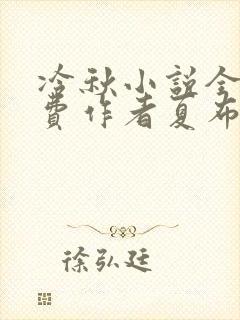 冷秋小説全
費作者夏布
徐弘廷